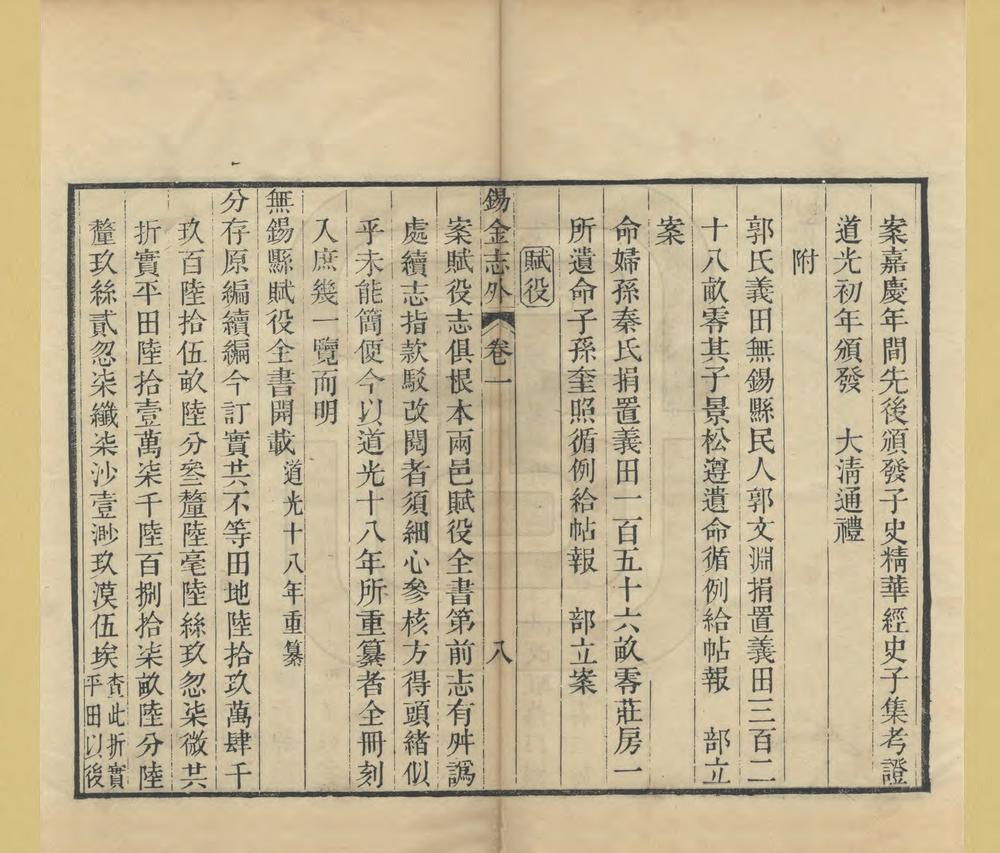 案嘉慶年間先後頒發子史精華經史子集考證
道光初年頒發　大淸通禮
附
郭氏義田無錫縣民人郭文淵捐置義田三百二
十八畝零其子景松遵遺命循例給帖報　部立
案
命婦孫秦氏捐置義田一百五十六畝零莊房一
所遺命子孫奎照循例給帖報　部立案
賦役
錫金志外　卷一　八
案賦役志俱根本兩邑賦役全書第前志有舛譌
處續志指款駁改閱者須細心參核方得頭緒似
乎未能簡便今以道光十八年所重纂者全冊刻
入庶幾一覽而明
無錫縣賦役全書開載道光十八年重纂
分存原編續編今訂實共不等田地陸拾玖萬肆千
玖百陸拾伍畝陸分叁釐陸毫陸絲玖忽柒微共
折實平田陸拾壹萬柒千陸百捌拾柒畝陸分陸
釐玖絲貳忽柒纖柒沙壹渺玖漠伍埃查此折實
平田以後